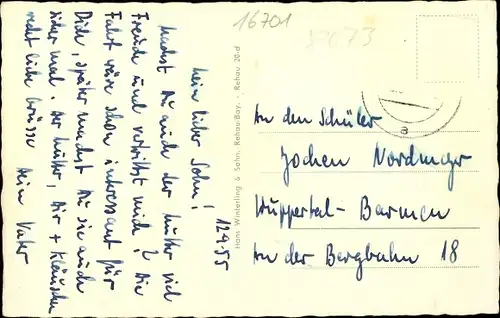 16701
12.4.55
Mein lieber Sohn!
Machst Du auch der Mutter viel
Freude und vertrittst mich? Die
Fahrt wäre schon interessant für
Dich, später machst Du sie auch
sicher mal. Der Mutter, Dir + Kläuschen
recht liebe Grüsse Dein Vater
Hans Winterling & Sohn, Rehau/Bay. · Rehau 20 d
An den Schüler
Jochen
Wuppertal-Barmen
An der Bergbahn 18
a